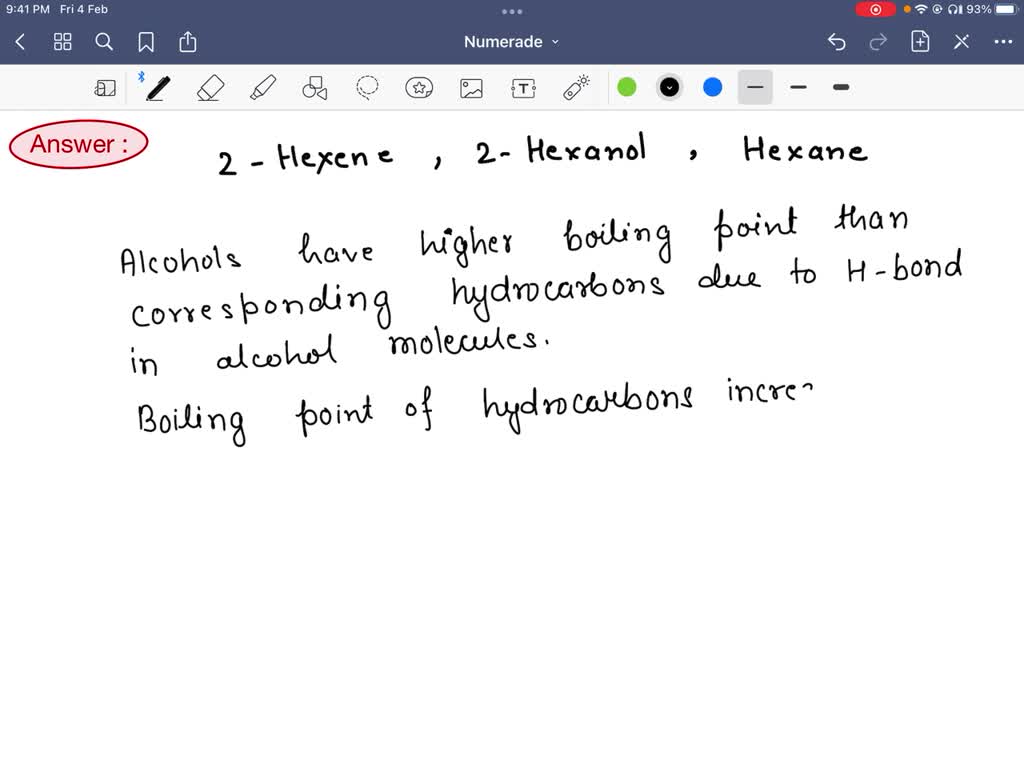 9:41 PM Fri 4 Feb 93%
Numerade
T
Answer :
2 - Hexene , 2 - Hexanol , Hexane
Alcohols have higher boiling point than
corresponding hydrocarbons due to H-bond
in alcohol molecules.
Boiling point of hydrocarbons incre